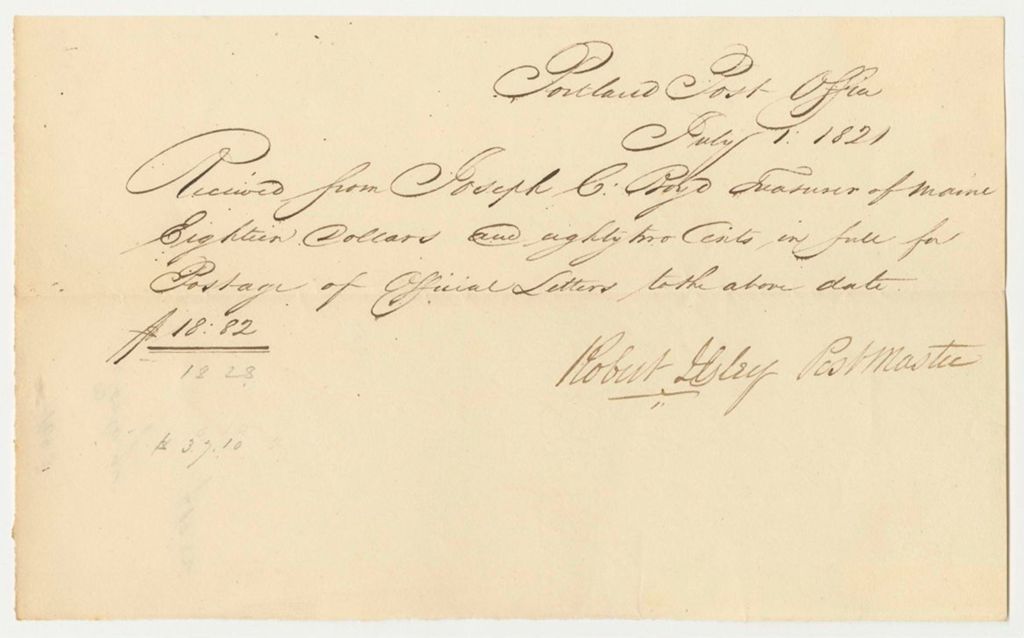 Portland Post Office
July 1. 1821
Received from Joseph C. Boyd Treasurer of Maine
Eighteen Dollars and eighty two Cents in full for
Postage of Official Letters to the above date
$ 18:82
18 28
Robert Ilsley PostMaster
$ 37.10